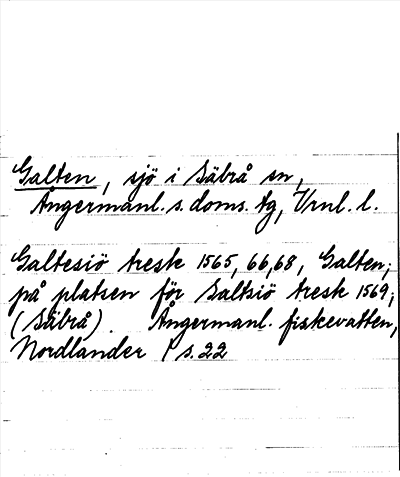 Galten, sjö i Säbrå sn,
Ångermanl. s. doms. tg, Vrnl. l.
Galtesiö tresk 1565, 66, 68, Galten;
på platsen för Saltsiö tresk 1569;
(Säbrå). Ångermanl. fiskevatten,
Nordlander I s. 22